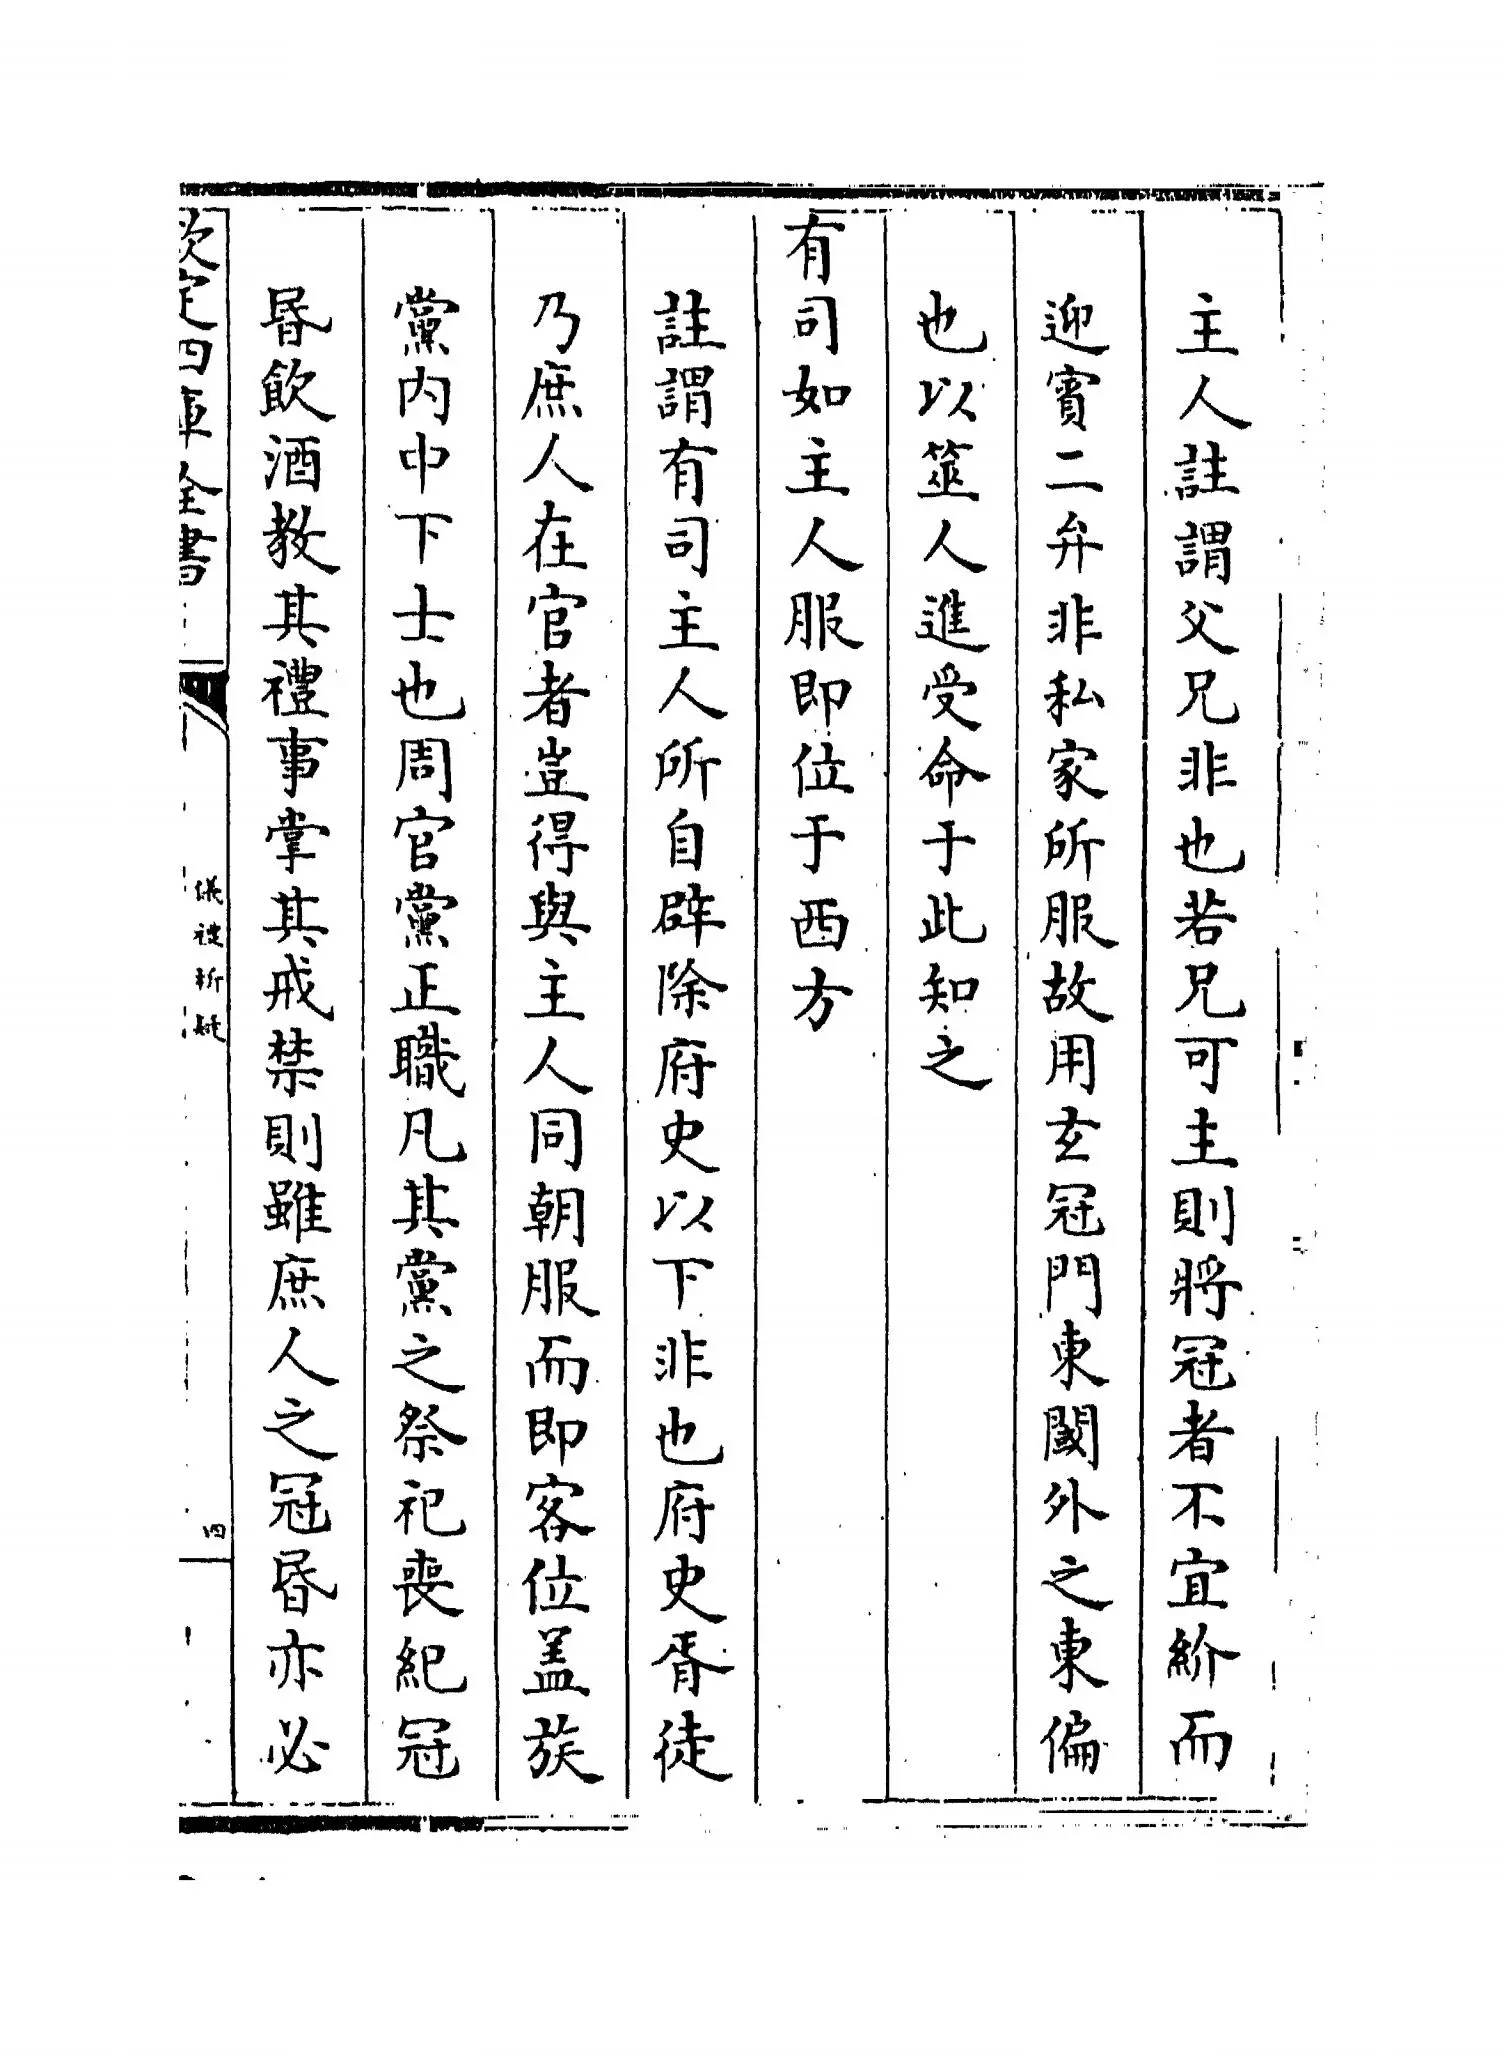 主人註謂父兄非也若兄可主則將冠者不宜紒而
迎賓二弁非私家所服故用玄冠門東闑外之東偏
也以筮人進受命于此知之
有司如主人服即位于西方
註謂有司主人所自辟除府史以下非也府史胥徒
乃庶人在官者豈得與主人同朝服而即客位盖族
黨内中下士也周官黨正職凡其黨之祭祀喪紀冠
昬飲酒教其禮事掌其戒禁則雖庶人之冠昬亦必
欽定四庫全書
儀禮析疑
四